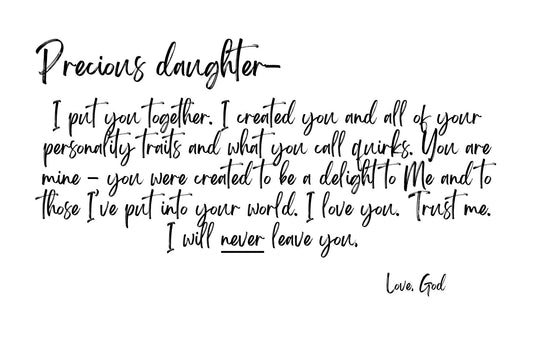 Precious daughter—
I put you together. I created you and all of your
personality traits and what you call quirks. You are
mine – you were created to be a delight to Me and to
those I've put into your world. I love you. Trust me.
I will never leave you.
Love, God